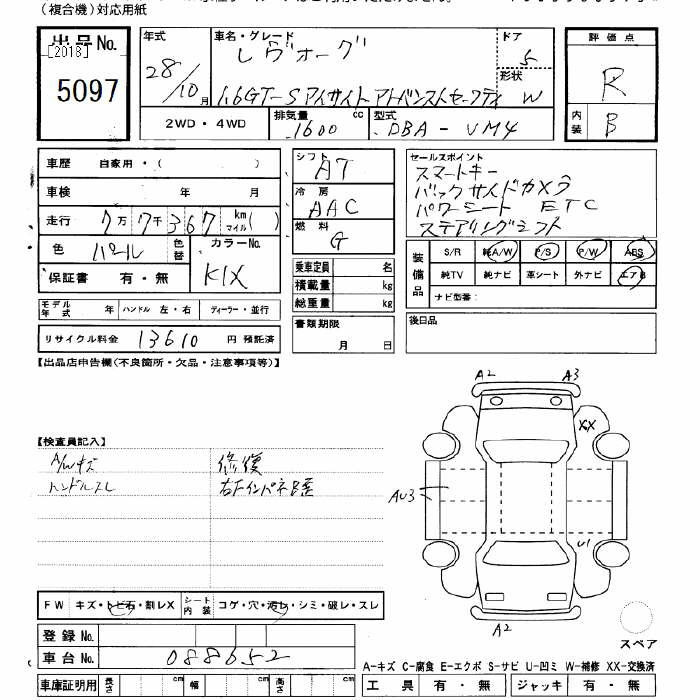 (複合機)対応用紙
出品No.
[2018]
5097
年式
28/10月
車名・グレード
レヴォーグ
1.6GT-Sアイサイトアドバンストセーフティ
ドア
5
形状
W
評価点
R
内装
B
2WD・4WD
排気量
1600
cc
型式
DBA-VM4
車歴 自家用・( )
車検 年 月
走行 7万7千367 km マイル( )
色 パール 色替
カラーNo.
K1X
保証書 有・無
モデル年式 年 ハンドル 左・右 ディーラー・並行
リサイクル料金 13610 円 預託済
シフト
AT
冷房
AAC
燃料
G
乗車定員 名
積載量 kg
総重量 kg
書類期限
月 日
セールスポイント
スマートキー
バックサイドカメラ
パワーシート ETC
ステアリングシフト
装備品
S/R 純A/W P/S P/W ABS
純TV 純ナビ 革シート 外ナビ エアB
ナビ型番:
後日品
【出品店申告欄(不良箇所・欠品・注意事項等)】
【検査員記入】
A/Wキズ
ハンドルスレ
修復
右下インパネB歪
A2
A3
XX
AU3
U1
A2
スペア
FW キズ・トビ石・割レX
シート内装 コゲ・穴・汚レ・シミ・破レ・スレ
登録No.
車台No. 088652
車庫証明用 長さ cm 幅 cm 高さ cm
A-キズ C-腐食 E-エクボ S-サビ U-凹ミ W-補修 XX-交換済
工具 有・無 ジャッキ 有・無